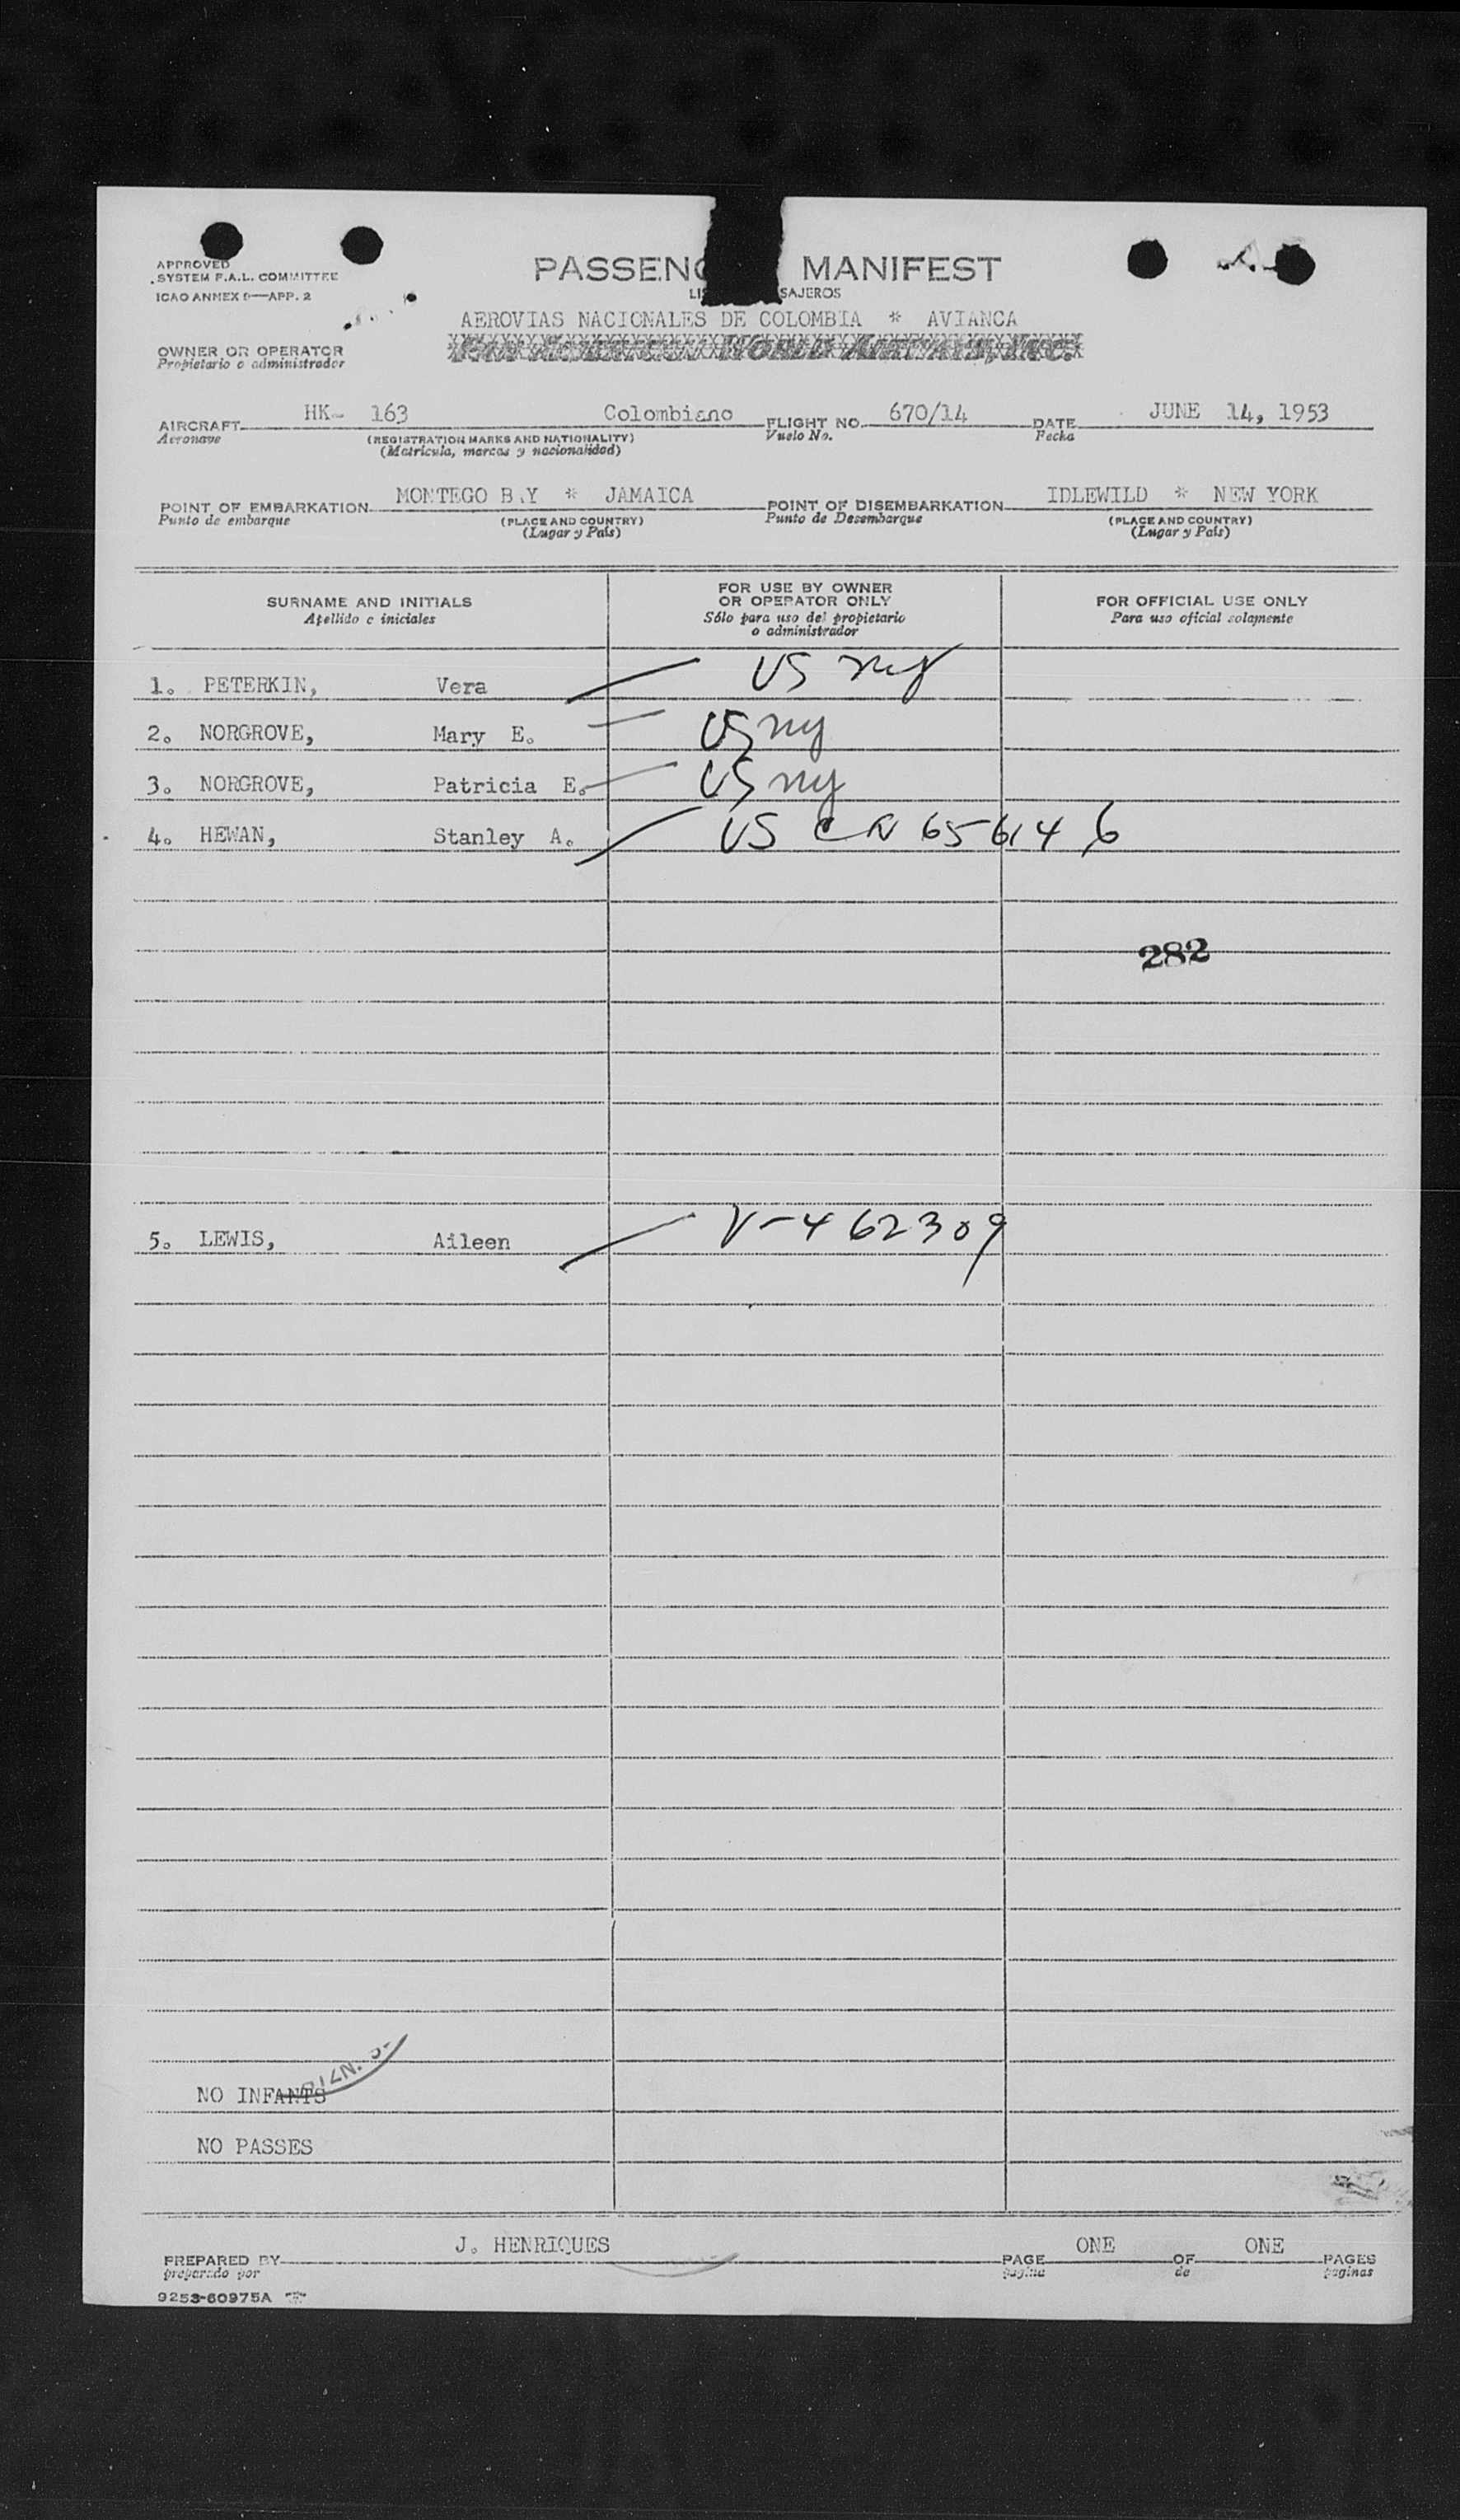 APPROVED
SYSTEM F.A.L. COMMITTEE
ICAO ANNEX 9—APP. 2
PASSENG MANIFEST
LIS SAJEROS
AEROVIAS NACIONALES DE COLOMBIA * AVIANCA
PAN AMERICAN WORLD AIRWAYS, INC.
OWNER OR OPERATOR
Propietario o administrador
AIRCRAFT HK- 163 Colombiano FLIGHT NO. 670/14 DATE JUNE 14, 1953
Aeronave (REGISTRATION MARKS AND NATIONALITY) Vuelo No. Fecha
(Matrícula, marcas y nacionalidad)
POINT OF EMBARKATION MONTEGO B.Y * JAMAICA POINT OF DISEMBARKATION IDLEWILD * NEW YORK
Punto de embarque (PLACE AND COUNTRY) Punto de Desembarque (PLACE AND COUNTRY)
(Lugar y País) (Lugar y País)
SURNAME AND INITIALS
Apellido e iniciales
FOR USE BY OWNER
OR OPERATOR ONLY
Sólo para uso del propietario
o administrador
FOR OFFICIAL USE ONLY
Para uso oficial solamente
1. PETERKIN, Vera US ny
2. NORGROVE, Mary E. US ny
3. NORGROVE, Patricia E. US ny
4. HEWAN, Stanley A. US CN 656146
282
5. LEWIS, Aileen V-462309
NO INFANTS
NO PASSES
PREPARED BY J. HENRIQUES PAGE ONE OF ONE PAGES
preparado por página de páginas
9253-60975A